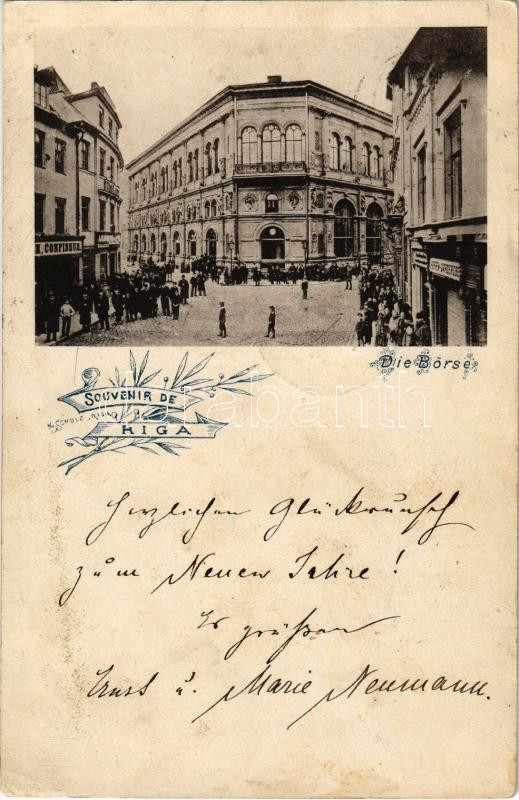 N. CONFISEUR
Die Börse
SOUVENIR DE
RIGA
N. SCHULZ, RIGA
darabanth
Herzlichen Glückwunsch
zum Neuen Jahre!
Es grüßen
Ernst u. Marie Neumann.